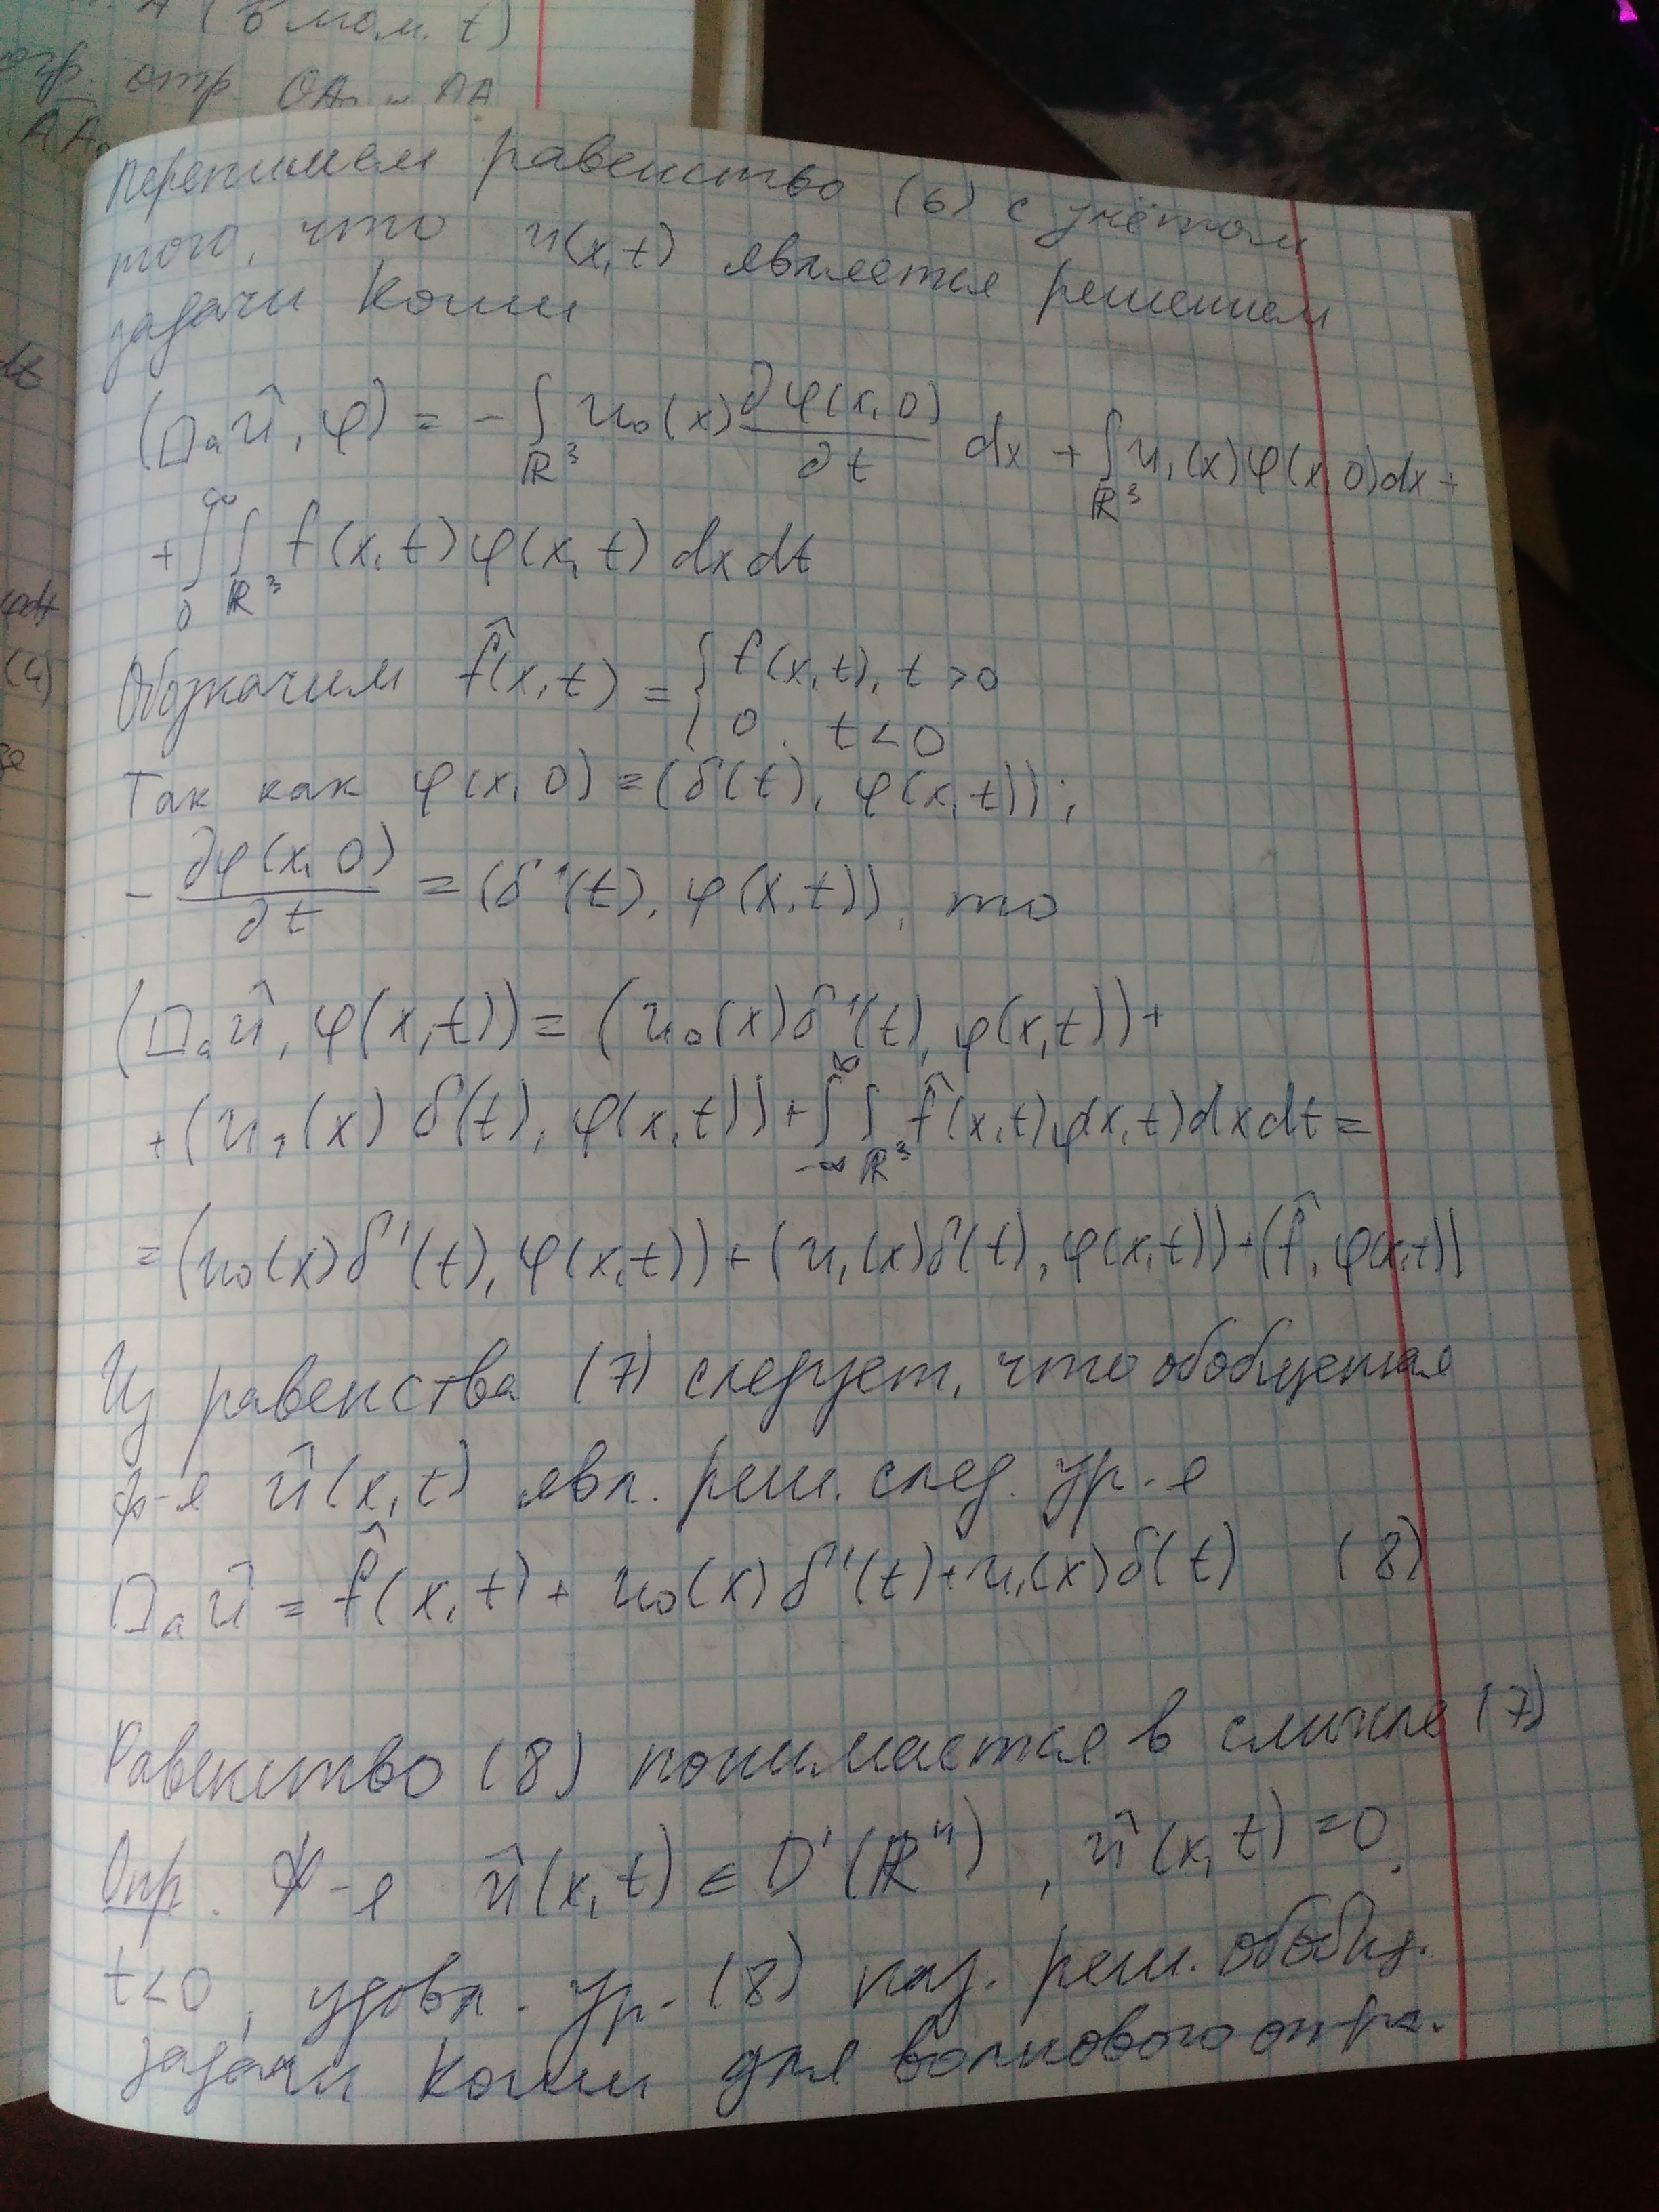 А (в мом. t)
отр. OA₀ и AA
AA₀
dt
φdt
(4)
Перепишем равенство (6) с учётом
того, что u(x,t) является решением
задачи Коши
(□ₐû, φ) = - ∫_{ℝ³} u₀(x) ∂φ(x,0)/∂t dx + ∫_{ℝ³} u₁(x)φ(x,0)dx +
+ ∫₀^∞ ∫_{ℝ³} f(x,t)φ(x,t) dx dt
Обозначим f̂(x,t) = { f(x,t), t>0
0, t<0
Так как φ(x,0) = (δ(t), φ(x,t));
- ∂φ(x,0)/∂t = (δ'(t), φ(x,t)), то
(□ₐû, φ(x,t)) = (u₀(x)δ'(t), φ(x,t)) +
+ (u₁(x) δ(t), φ(x,t)) + ∫_{-∞}^{∞} ∫_{ℝ³} f̂(x,t)φ(x,t)dxdt =
= (u₀(x)δ'(t), φ(x,t)) + (u₁(x)δ(t), φ(x,t)) + (f̂, φ(x,t))
Из равенства (7) следует, что обобщенная
ф-я û(x,t) явл. реш. след. ур-я
□ₐû = f̂(x,t) + u₀(x)δ'(t) + u₁(x)δ(t) (8)
Равенство (8) понимается в смысле (7)
Опр. Ф-я û(x,t) ∈ D'(ℝ⁴), û(x,t) = 0,
t<0, удовл. ур. (8) наз. реш. обобщ.
задачи Коши для волнового опра.